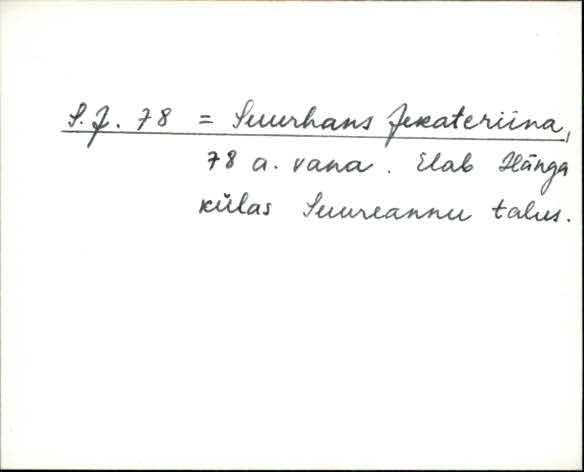 S.J. 78 = Suurhans Jekateriina,
78 a. vana. Elab Hänga
külas Suureannu talus.